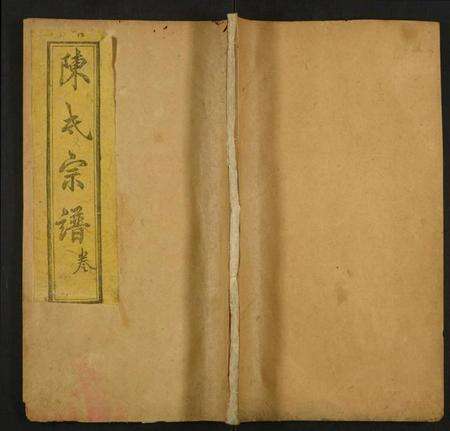 陳氏宗譜卷